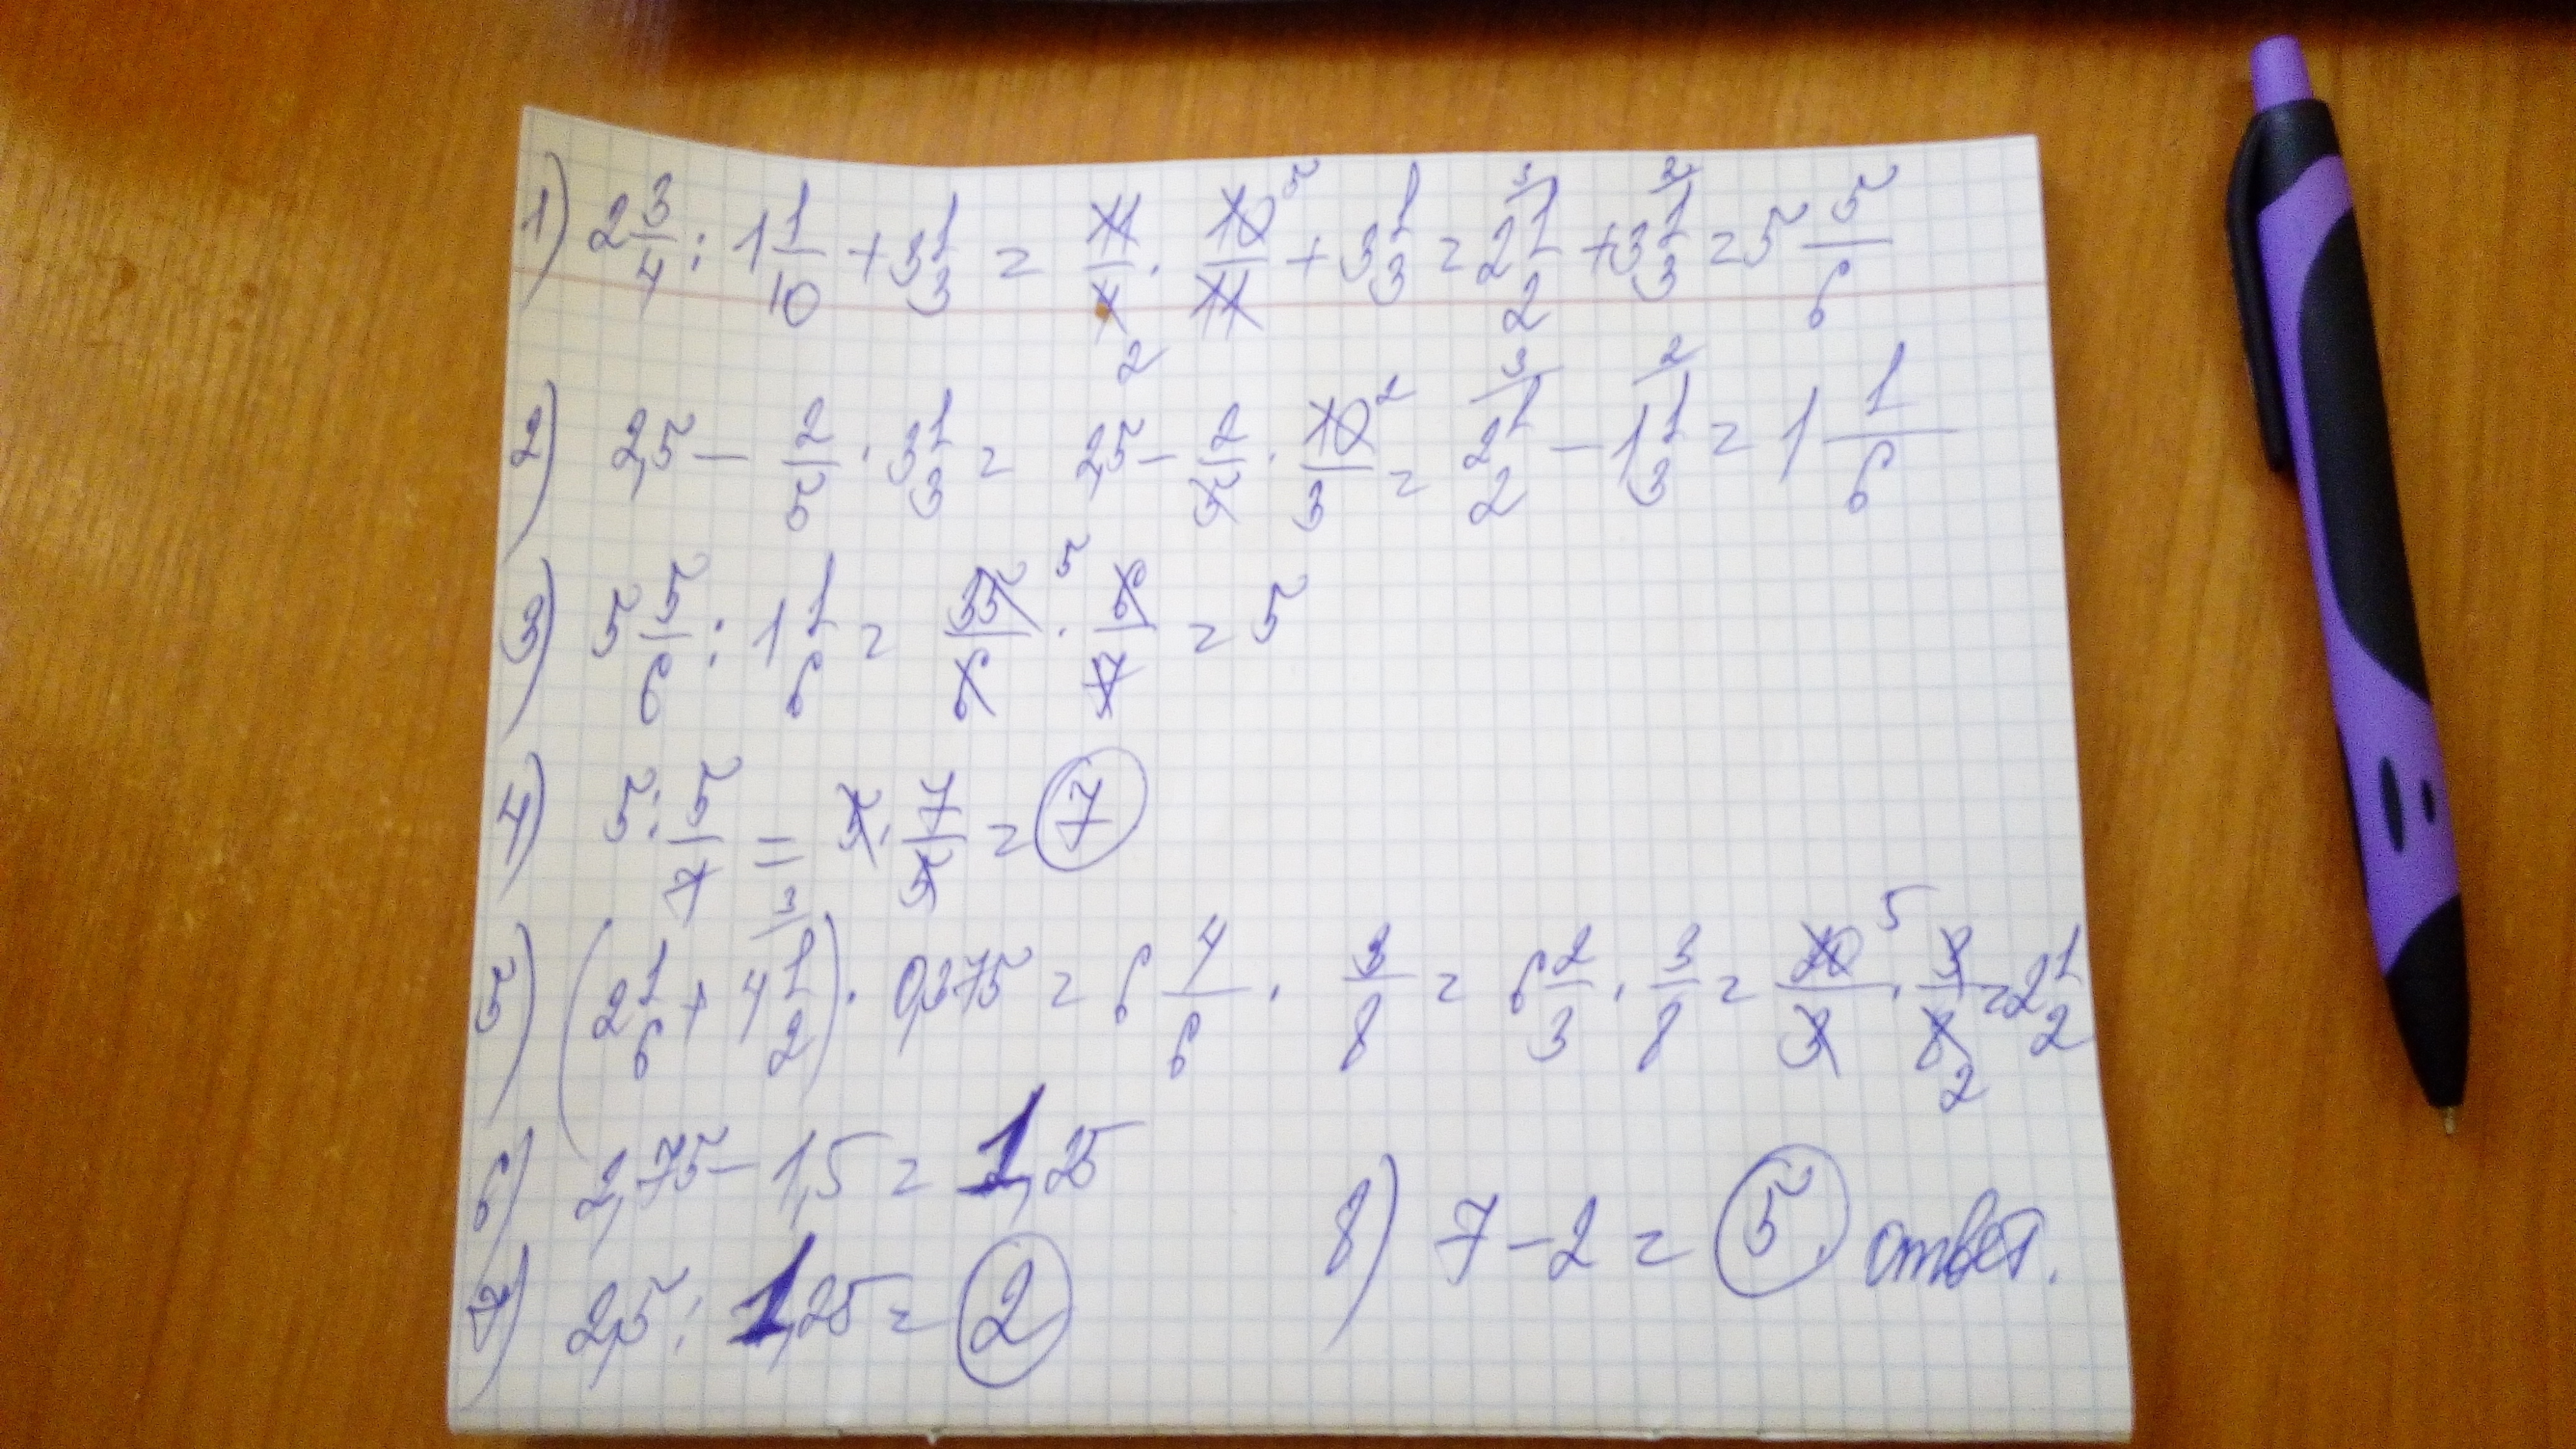 1) 2 3/4 : 1 1/10 + 3 1/3 = 11/4 · 10/11 + 3 1/3 = 2 1/2 + 3 1/3 = 5 5/6
2) 2,5 − 2/5 · 3 1/3 = 2,5 − 2/5 · 10/3 = 2 1/2 − 1 1/3 = 1 1/6
3) 5 5/6 : 1 1/6 = 35/6 · 6/7 = 5
4) 5 : 5/7 = 5 · 7/5 = 7
5) (2 1/6 + 4 1/2) · 0,375 = 6 4/6 · 3/8 = 6 2/3 · 3/8 = 20/3 · 3/8 = 2 1/2
6) 2,75 − 1,5 = 1,25
7) 2,5 : 1,25 = 2
8) 7 − 2 = 5. ответ.